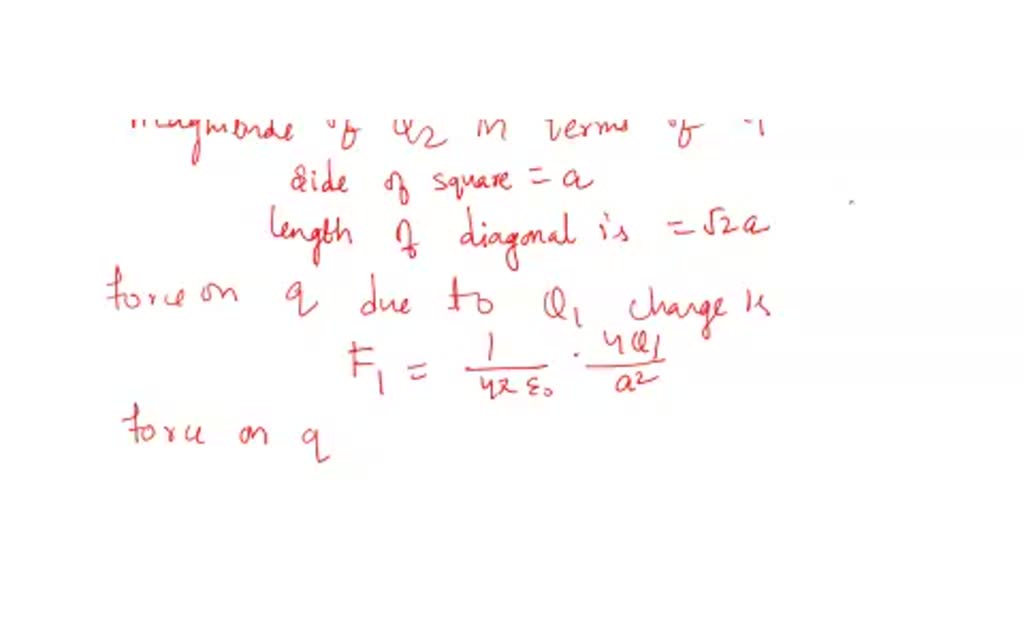 magnitude of Q2 in terms of q
side of square = a
length of diagonal is = √2a
force on q due to Q1 charge is
F1 = 1/4π ε0 · qQ1/a2
force on q